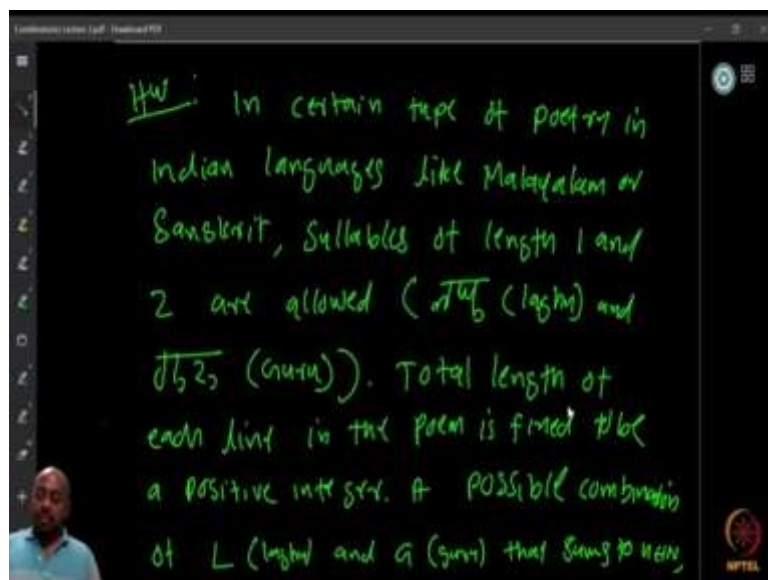 HW : In certain type of poetry in
Indian languages like Malayalam or
Sanskrit, Syllables of length 1 and
2 are allowed ( (laghu) and
(Guru)). Total length of
each line in the poem is fixed to be
a positive integer. A possible combination
of L (laghu) and G (guru) that sums to
NPTEL